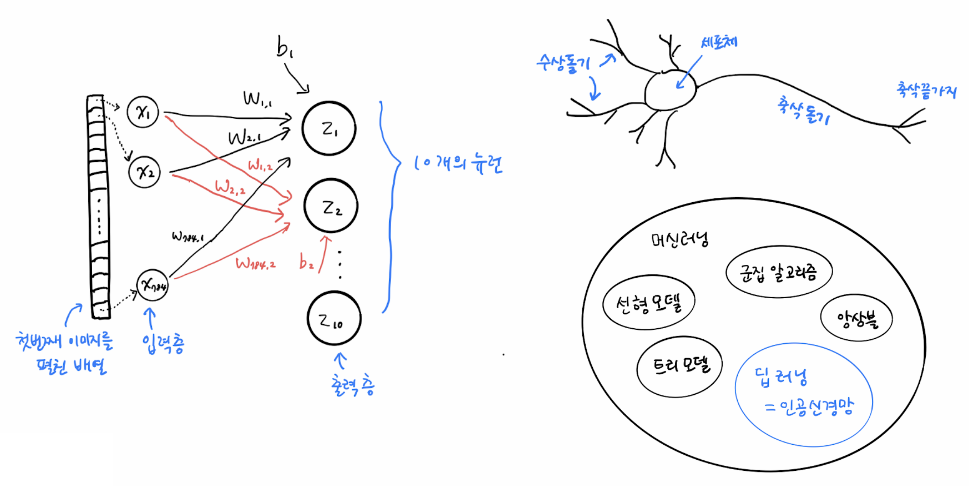 b₁
x₁
x₂
x₇₈₄
W₁,₁
W₂,₁
W₁,₂
W₂,₂
W₇₈₄,₁
W₇₈₄,₂
b₂
z₁
z₂
z₁₀
10개의 뉴런
첫번째 이미지를
펼친 배열
입력층
출력층
수상돌기
세포체
축삭돌기
축삭끝가지
머신러닝
선형 모델
군집 알고리즘
앙상블
트리 모델
딥러닝
= 인공신경망